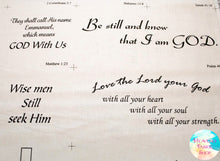 They shall call His name
Emmanuel,
which means
GOD With Us
Be still and know
that I am GOD.
Matthew 1:23
Wise men
Still
seek Him
Love the Lord your God
with all your heart
with all your soul
with all your strength.